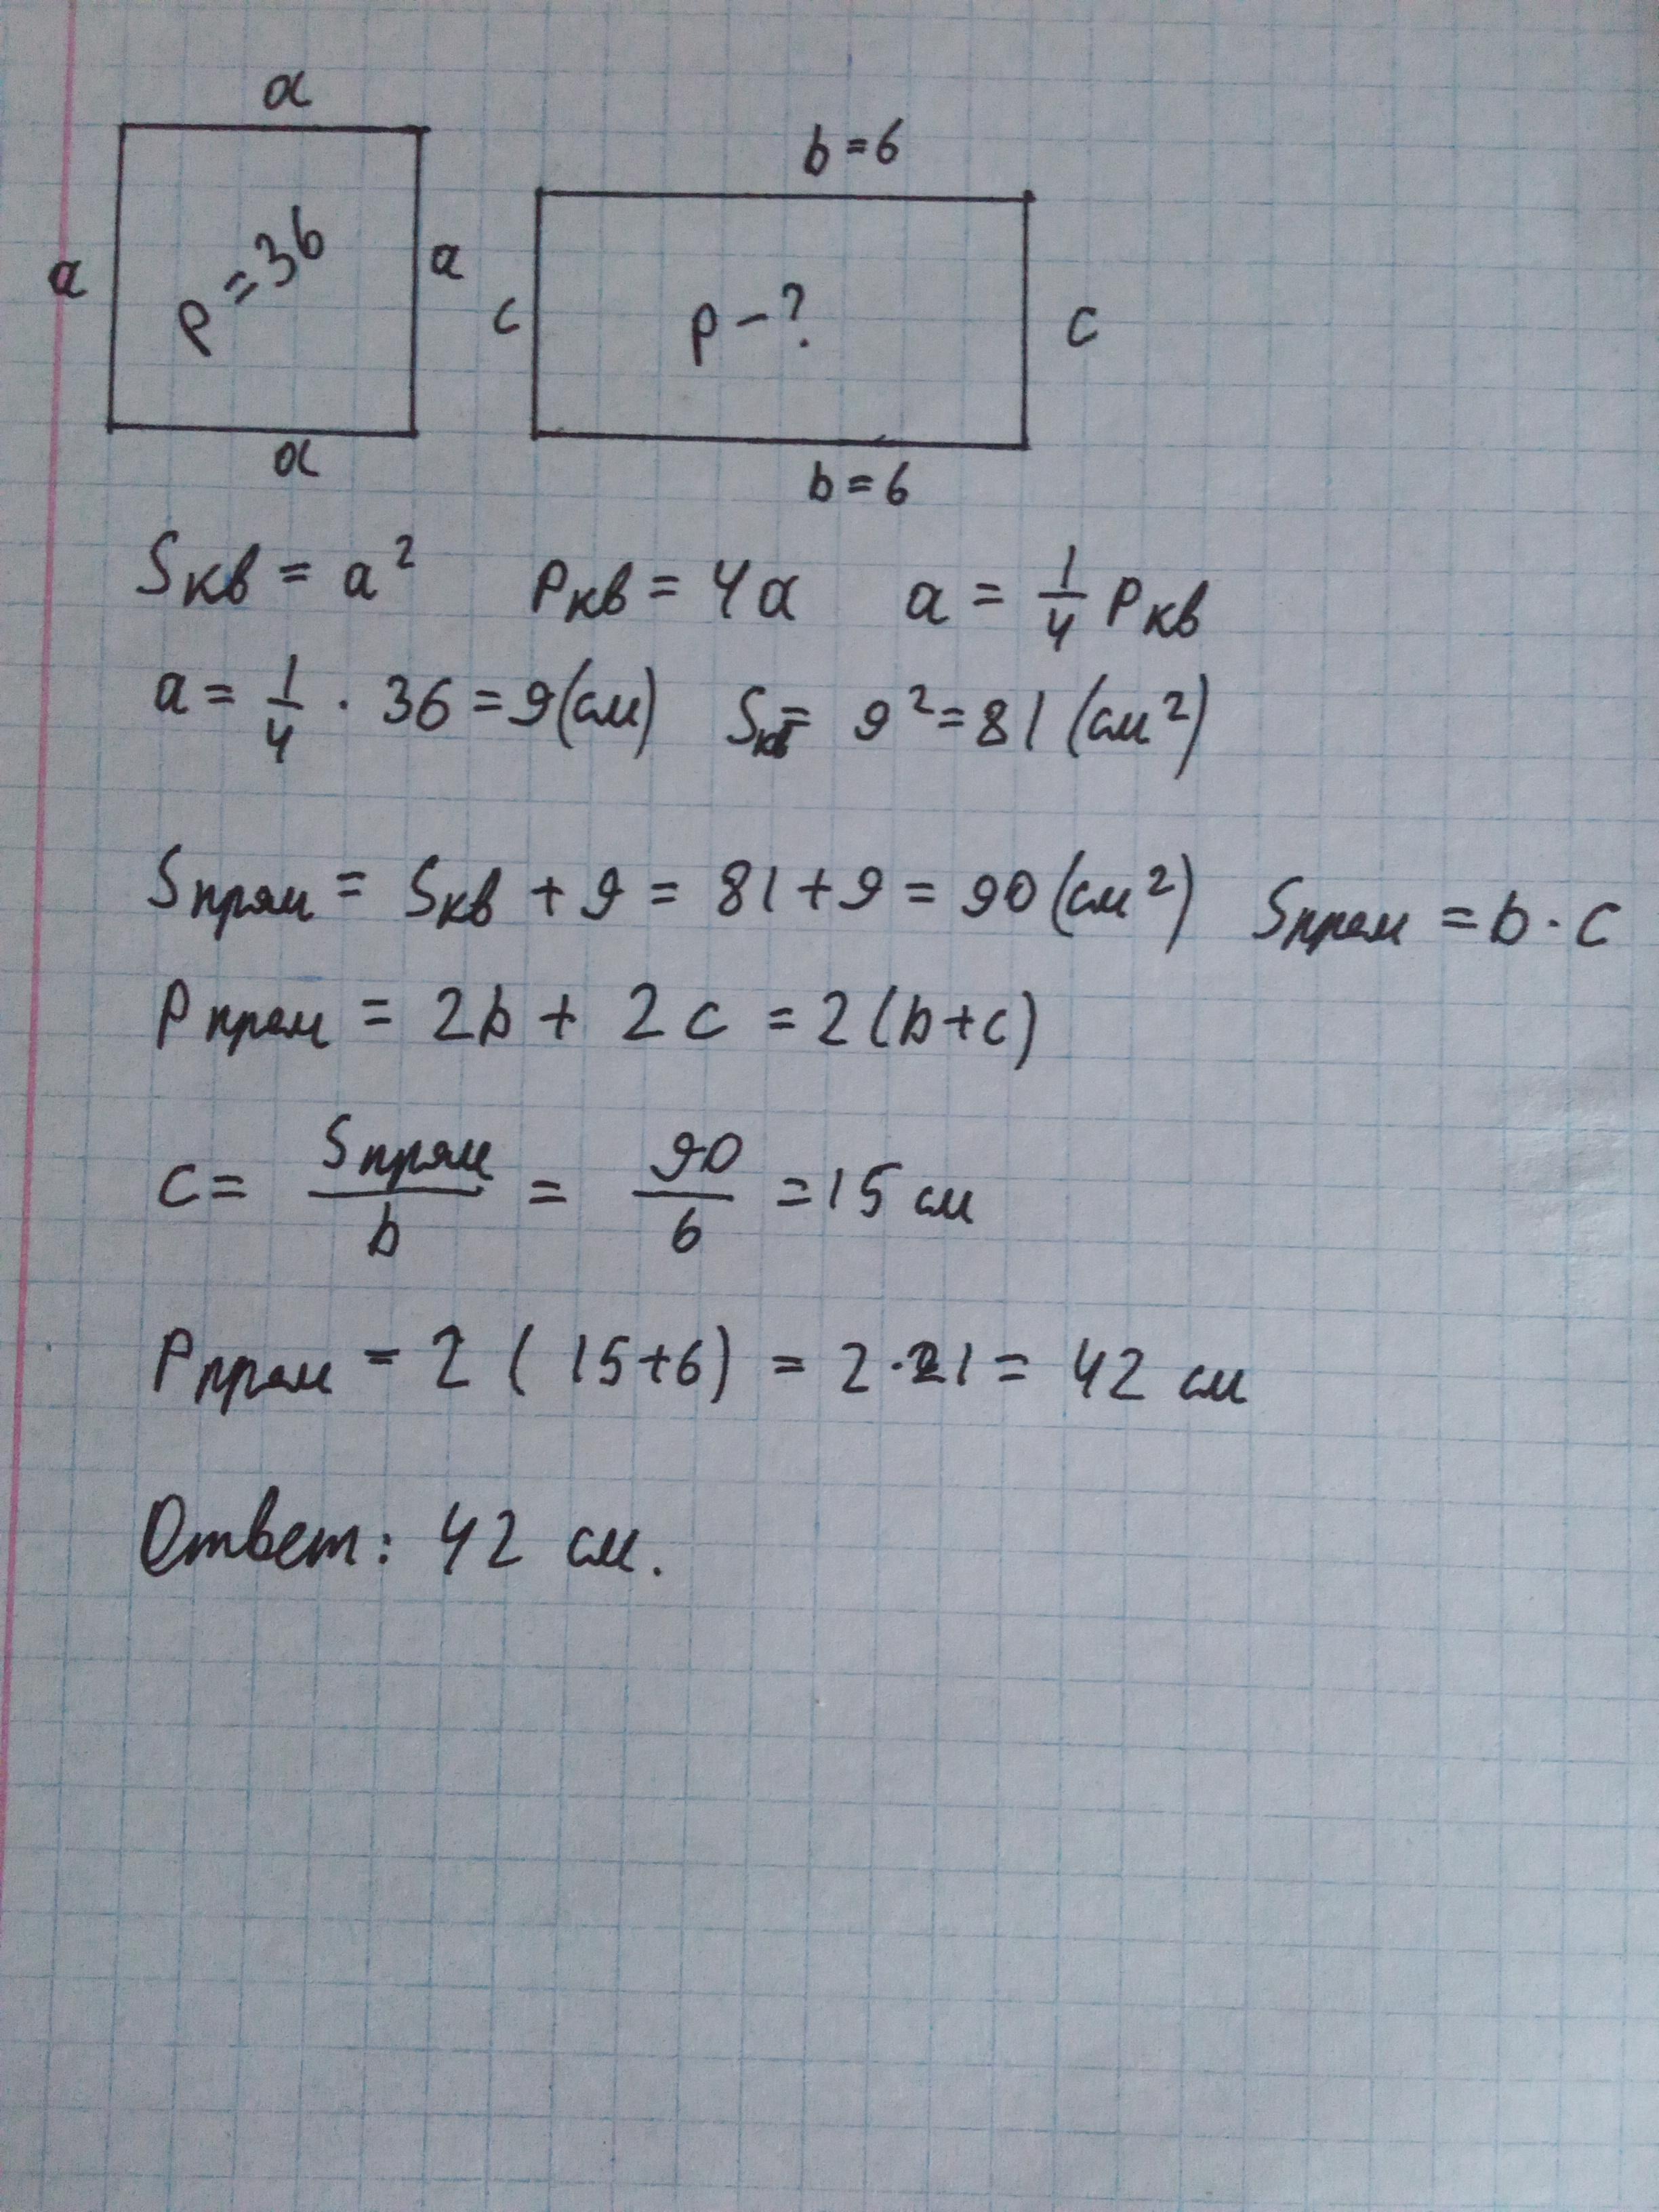 a
b = 6
a
P = 36
a
c
P - ?
c
a
b = 6
Sкв = a² Pкв = 4a a = 1/4 Pкв
a = 1/4 · 36 = 9 (см) Sкв = 9² = 81 (см²)
Sпрям = Sкв + 9 = 81 + 9 = 90 (см²) Sпрям = b · c
Pпрям = 2b + 2c = 2(b+c)
c = Sпрям/b = 90/6 = 15 см
Pпрям = 2 (15+6) = 2 · 21 = 42 см
Ответ: 42 см.